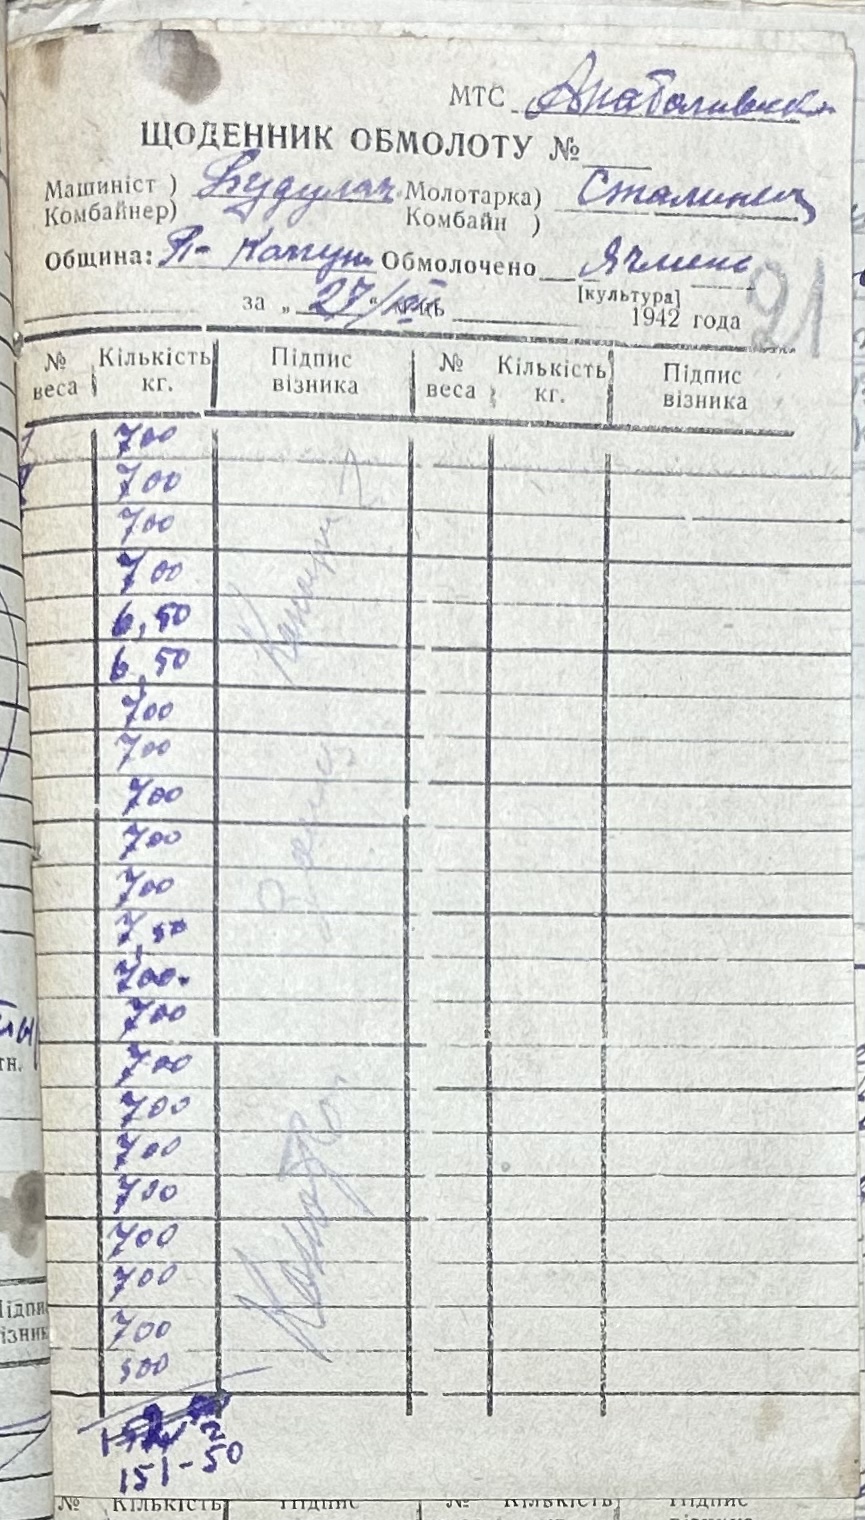 МТС Анатоливская
ЩОДЕННИК ОБМОЛОТУ №
Машиніст ) Будулач Молотарка) Сталинец
Комбайнер) Комбайн )
Община: Обмолочено Ячмень
[культура]
за „27/VII“ м-ць 1942 года
21
№ веса Кількість кг. Підпис візника № веса Кількість кг. Підпис візника
700
700
700
700
6,50
6,50
700
700
700
700
700
7,50
700.
700
700
700
700
700
700
700
700
500
151-50
тн.
Підпи
ізник
№ Кількість Підпис № Кількість Підпис